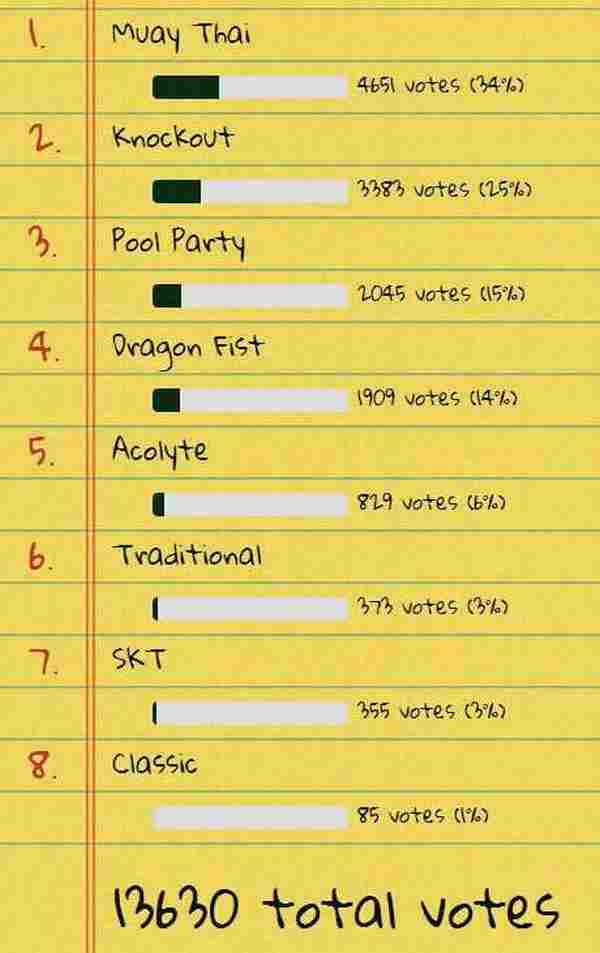 1. Muay Thai
4651 votes (34%)
2. Knockout
3383 votes (25%)
3. Pool Party
2045 votes (15%)
4. Dragon Fist
1909 votes (14%)
5. Acolyte
829 votes (6%)
6. Traditional
373 votes (3%)
7. SKT
355 votes (3%)
8. Classic
85 votes (1%)
13630 total votes